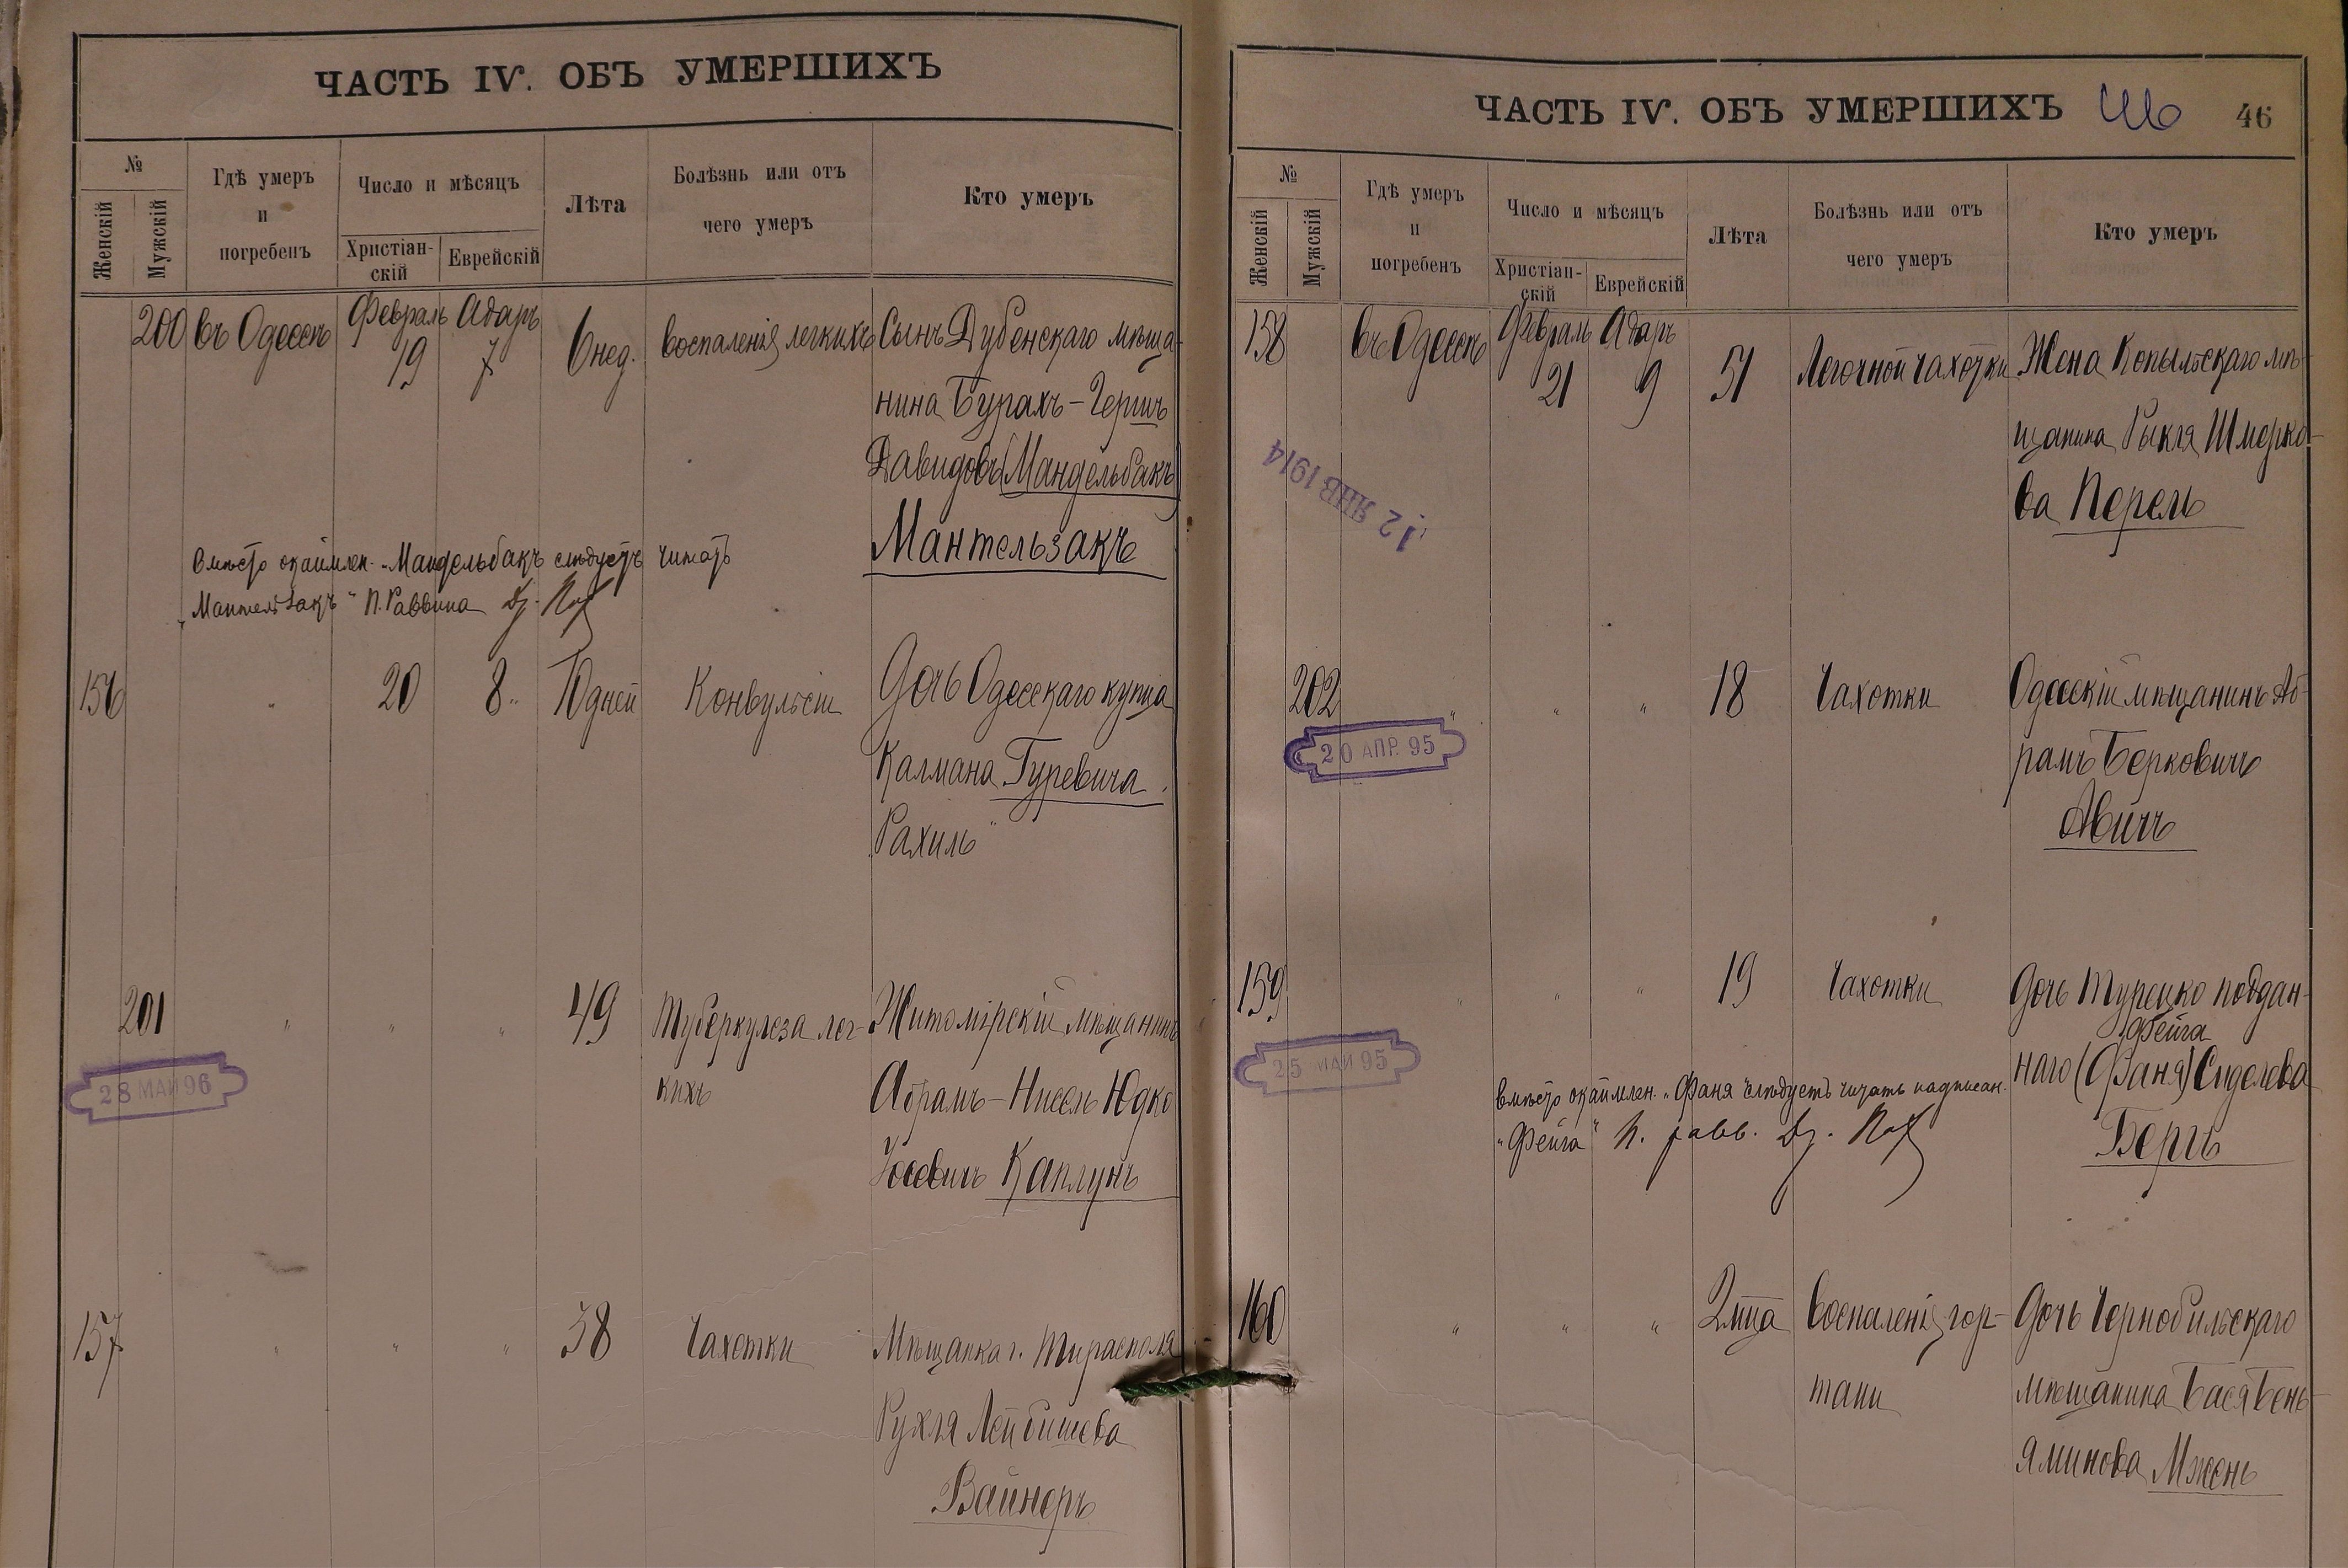 ЧАСТЬ IV. ОБЪ УМЕРШИХЪ
№
Женскій
Мужскій
Гдѣ умеръ
и
погребенъ
Число и мѣсяцъ
Христіан-
скій
Еврейскій
Лѣта
Болѣзнь или отъ
чего умеръ
Кто умеръ
200
въ Одессѣ
Февраль
19
Адаръ
7
6 нед.
воспаленія легкихъ
Сынъ Дубенскаго мѣща-
нина Бурахъ-Гершъ
Давидовъ (Мандельбакъ)
Мантельзакъ
вмѣсто окаймлен. "Мандельбакъ слѣдуетъ читать
"Мантельзакъ" П. Раввина
156
"
20
8
10 дней
Конвульсіи
Дочь Одесскаго купца
Калмана Гуревича
Рахиль
201
"
"
"
49
Туберкулеза лег-
кихъ
Житомірскій мѣщанинъ
Абрамъ-Нисель Юдко
Іосевичъ Каплунъ
28 МАЙ 96
157
"
"
"
38
Чахотки
Мѣщанка г. Тирасполя
Рухля Лейбишева
Вайнеръ
ЧАСТЬ IV. ОБЪ УМЕРШИХЪ
46
46
№
Женскій
Мужскій
Гдѣ умеръ
и
погребенъ
Число и мѣсяцъ
Христіан-
скій
Еврейскій
Лѣта
Болѣзнь или отъ
чего умеръ
Кто умеръ
158
въ Одессѣ
Февраль
21
Адаръ
9
51
Легочной чахотки
Жена Копыльскаго мѣ-
щанина Рыкля Шмерко-
ва Перель
12 ЯНВ 1914
202
"
"
"
18
Чахотки
Одесскій мѣщанинъ Аб-
рамъ Берковичъ
Авичъ
20 АПР. 95
159
"
"
"
19
Чахотки
Дочь Турецко поддан-
Фейга
наго (Фаня) Сиделева
Бергъ
25 МАЙ 95
вмѣсто окаймлен. "Фаня" слѣдуетъ читать надписан.
"Фейга" П. равв.
160
"
"
"
2 мѣца
Воспаленія гор-
тани
Дочь Чернобыльскаго
мѣщанина Бася Бень-
яминова Мжень